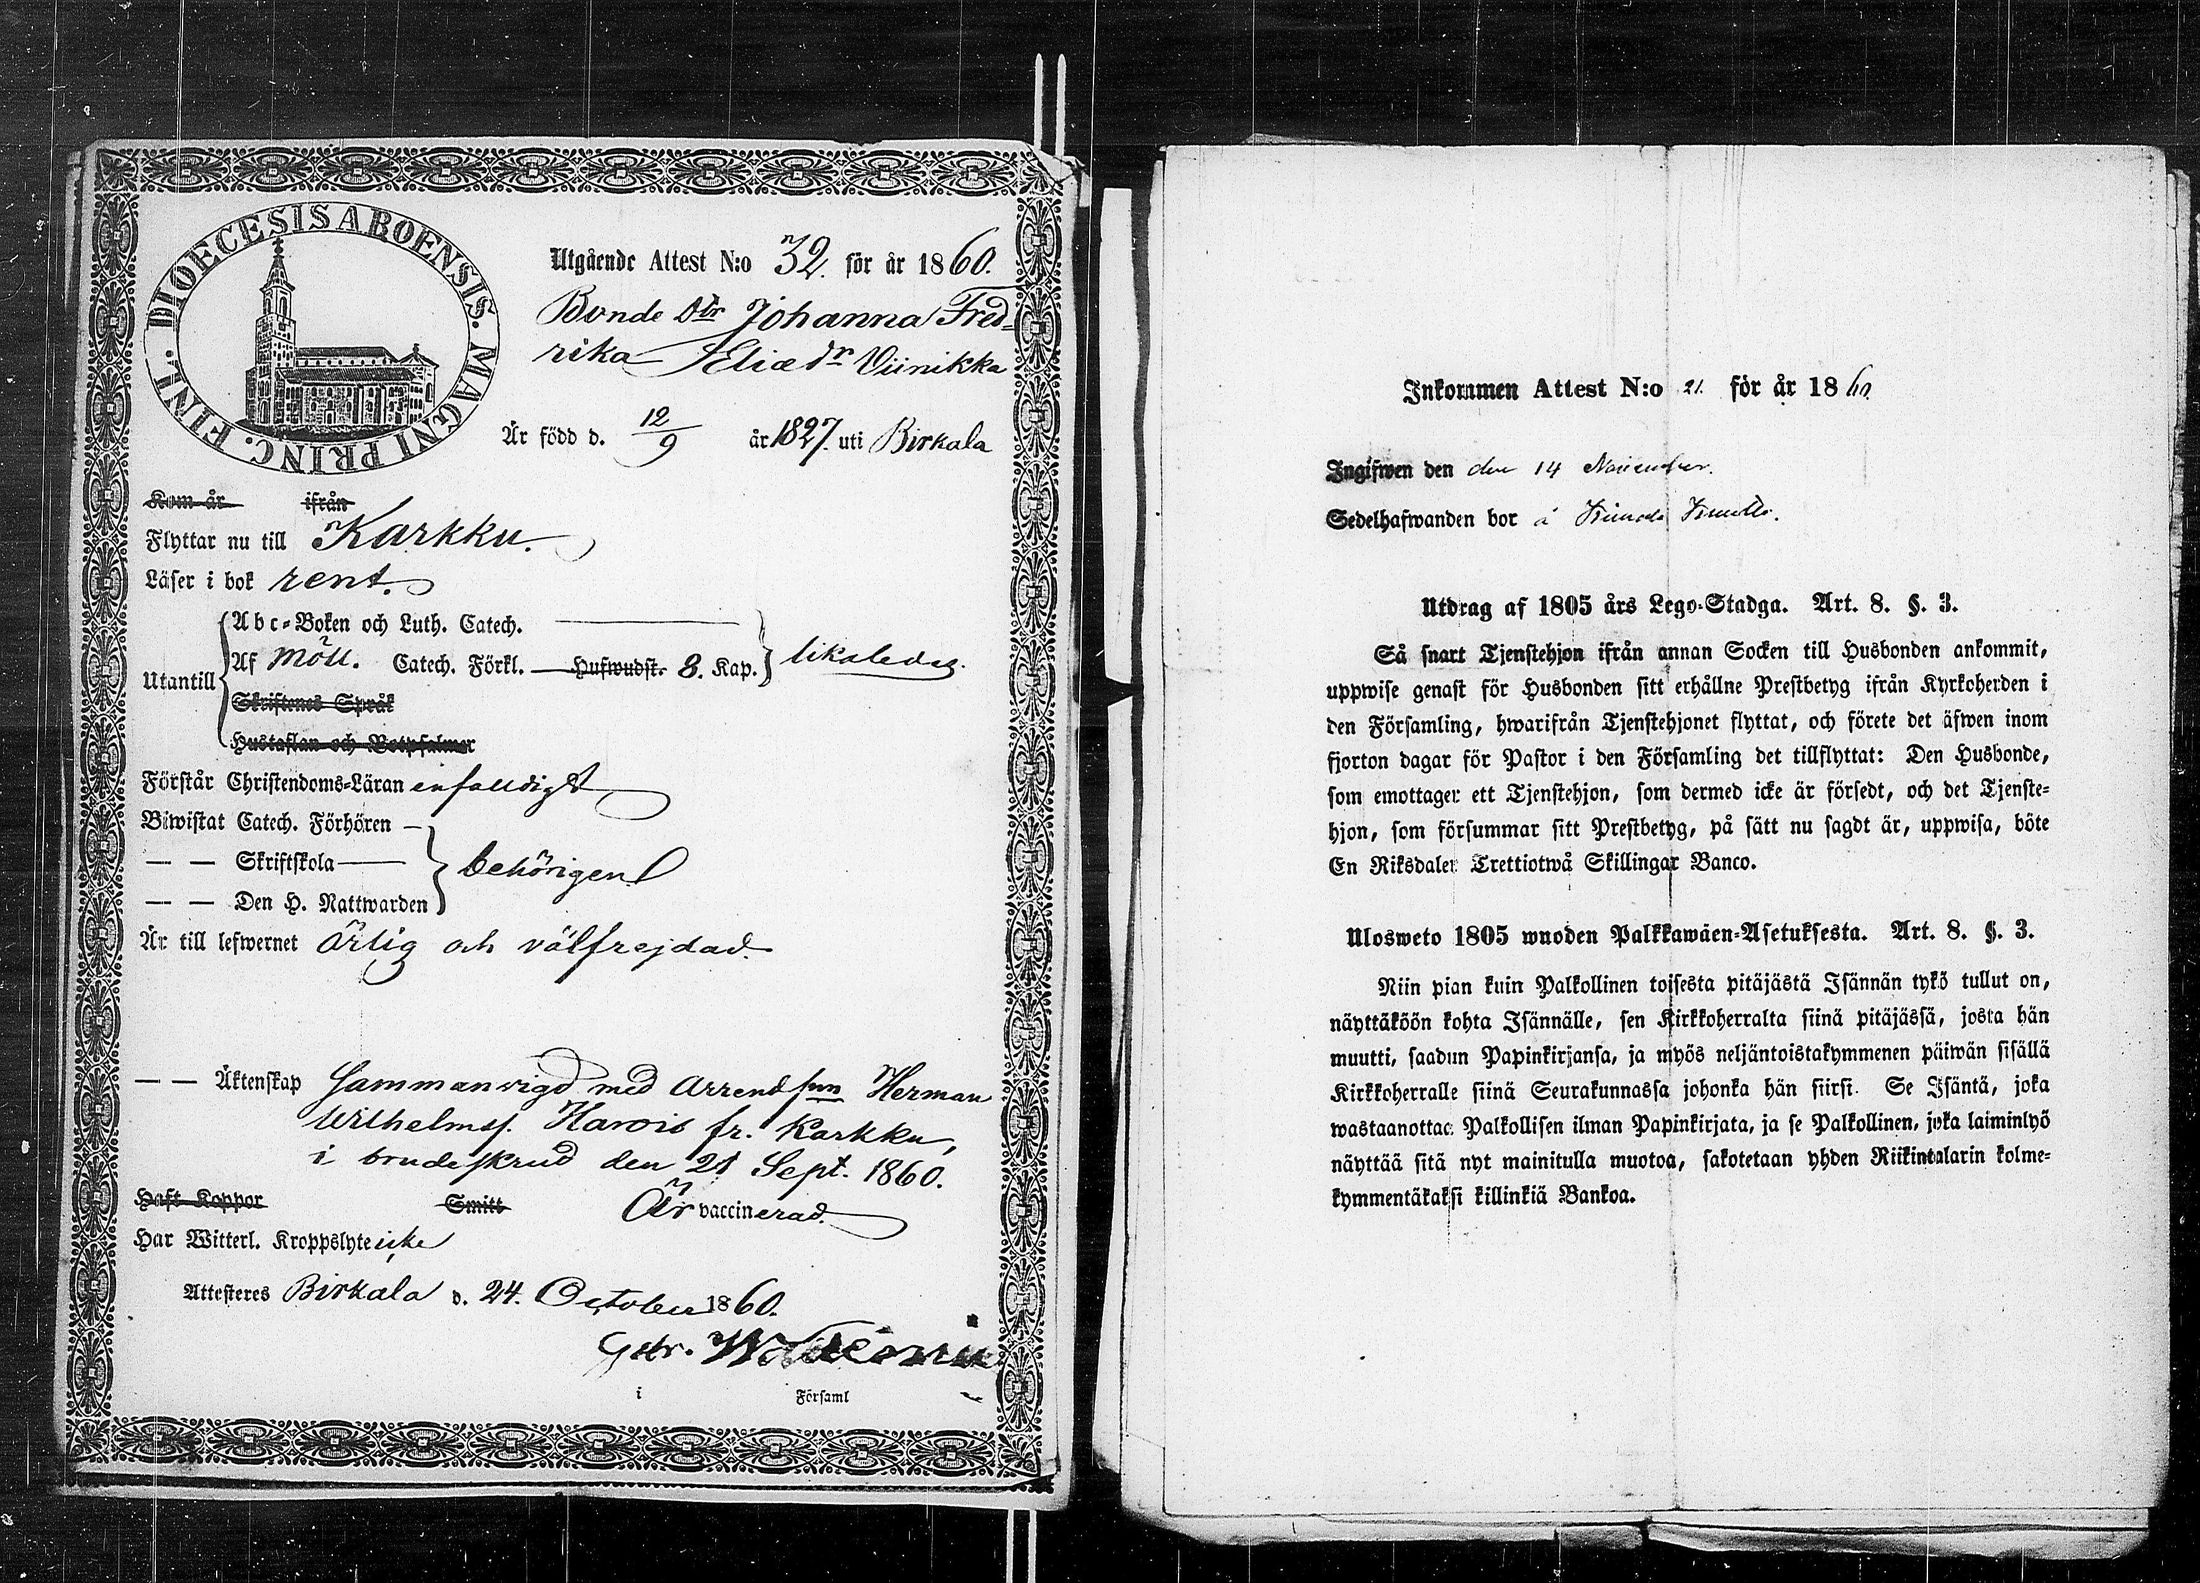 DIOECESIS ABOENSIS. MAGNI PRINC. FINL.
Utgående Attest N:o 32. för år 1860.
Bonde Dtr Johanna Fred-
rika Eliædr Viinikka
Är född d. 12/9 år 1827. uti Birkala
Kom år ifrån
Flyttar nu till Karkku.
Läser i bok rent.
Utantill
Abc-Boken och Luth. Catech.
Af Möll. Catech. Förkl. Hufwudst. 8. Kap. likaledes.
Skriftenes Språk
Hustaflan och Botpsalmer
Förstår Christendoms-Läran enfaldigt
Biwistat Catech. Förhören
— — Skriftskola
behörigen
— — Den H. Nattwarden
Är till lefwernet ärlig och välfrejdad.
— — Äktenskap Sammanvigd med Arrend. Herman
Wilhelmss. Harois fr. Karkku,
i brudeskrud den 21 Sept. 1860.
Haft Koppor Smitt Är vaccinerad.
Har Witterl. Kroppslyte icke
Attesteres Birkala d. 24. October 1860.
i Församl
Inkommen Attest N:o 21. för år 1860
Ingifwen den den 14 November.
Sedelhafwanden bor å
Utdrag af 1805 års Lego-Stadga. Art. 8. §. 3.
Så snart Tjenstehjon ifrån annan Socken till Husbonden ankommit,
uppwise genast för Husbonden sitt erhållne Prestbetyg ifrån Kyrkoherden i
den Församling, hwarifrån Tjenstehjonet flyttat, och förete det äfwen inom
fjorton dagar för Pastor i den Församling det tillflyttat: Den Husbonde,
som emottager ett Tjenstehjon, som dermed icke är försedt, och det Tjenste-
hjon, som försummar sitt Prestbetyg, på sätt nu sagdt är, uppwisa, böte
En Riksdaler Trettiotwå Skillingar Banco.
Ulosweto 1805 wuoden Palkkawäen-Asetuksesta. Art. 8. §. 3.
Niin pian kuin Palkollinen toisesta pitäjästä Isännän tykö tullut on,
näyttäköön kohta Isännälle, sen Kirkkoherralta siinä pitäjässä, josta hän
muutti, saadun Papinkirjansa, ja myös neljäntoistakymmenen päiwän sisällä
Kirkkoherralle siinä Seurakunnassa johonka hän siirsi. Se Isäntä, joka
wastaanottaa Palkollisen ilman Papinkirjata, ja se Palkollinen, joka laiminlyö
näyttää sitä nyt mainitulla muotoa, sakotetaan yhden Riikintalarin kolme-
kymmentäkaksi killinkiä Bankoa.